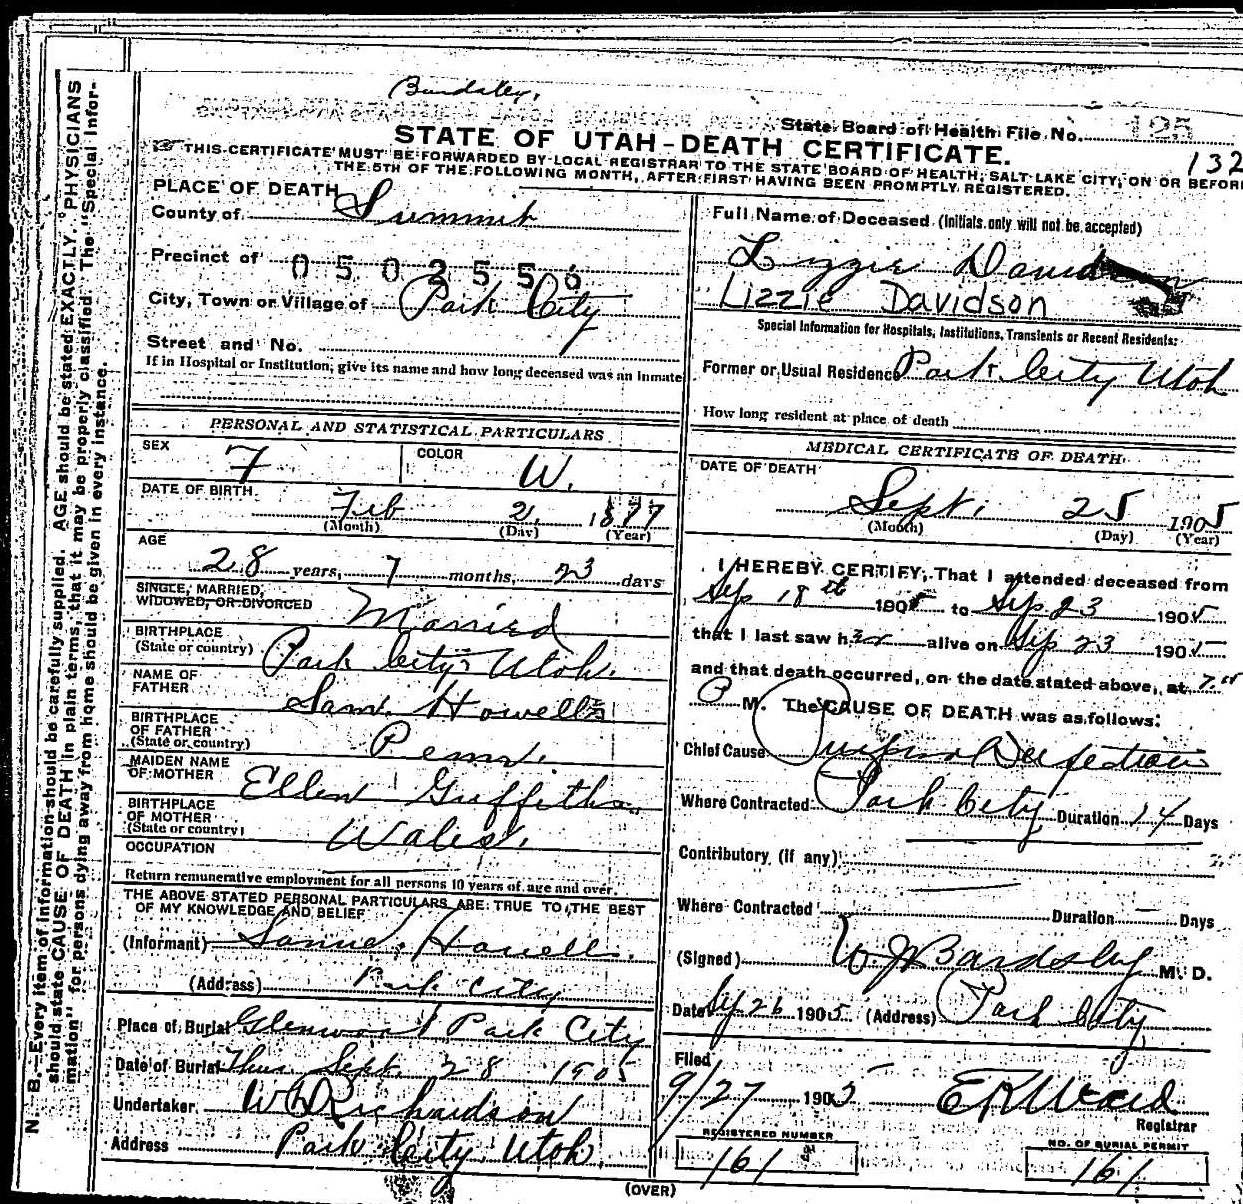 Bardsley.
State Board of Health File No. 125
STATE OF UTAH-DEATH CERTIFICATE.
132
THIS CERTIFICATE MUST BE FORWARDED BY LOCAL REGISTRAR TO THE STATE BOARD OF HEALTH, SALT LAKE CITY, ON OR BEFORE
THE 5TH OF THE FOLLOWING MONTH, AFTER FIRST HAVING BEEN PROMPTLY REGISTERED.
PLACE OF DEATH
County of Summit
Precinct of 0502556
City, Town or Village of Park City
Street and No.
If in Hospital or Institution, give its name and how long deceased was an inmate
PERSONAL AND STATISTICAL PARTICULARS
SEX F COLOR W.
DATE OF BIRTH Feb 2, 1877
(Month) (Day) (Year)
AGE
28 years, 7 months, 23 days
SINGLE, MARRIED,
WIDOWED, OR DIVORCED Married
BIRTHPLACE
(State or country) Park City Utah.
NAME OF
FATHER Sam. Howells
BIRTHPLACE
OF FATHER
(State or country) Penn.
MAIDEN NAME
OF MOTHER Ellen Griffiths
BIRTHPLACE
OF MOTHER
(State or country) Wales.
OCCUPATION
Return remunerative employment for all persons 10 years of age and over.
THE ABOVE STATED PERSONAL PARTICULARS ARE TRUE TO THE BEST
OF MY KNOWLEDGE AND BELIEF
(Informant) Samuel Howells.
(Address) Park City
Place of Burial Glenwood Park City
Date of Burial Thur Sept. 28 1905
Undertaker W D Richardson
Address Park City Utah.
Full Name of Deceased (Initials only will not be accepted)
Lizzie
Lizzie Davidson
Special Information for Hospitals, Institutions, Transients or Recent Residents:
Former or Usual Residence Park City Utah
How long resident at place of death
MEDICAL CERTIFICATE OF DEATH
DATE OF DEATH
Sept. 25 1905
(Month) (Day) (Year)
I HEREBY CERTIFY, That I attended deceased from
Sep 18th 1905 to Sep 23 1905
that I last saw her alive on Sep 23 1905
and that death occurred, on the date stated above, at
P M. The CAUSE OF DEATH was as follows:
Chief Cause
Where Contracted Park City Duration 14 Days
Contributory (if any)
Where Contracted Duration — Days
(Signed) W J Bardsley M. D.
Date Sep 26 1905 (Address) Park City
Filed
9/27 1905
Registrar
REGISTERED NUMBER
161
NO. OF BURIAL PERMIT
161
(OVER)
N. B.—Every item of information should be carefully supplied. AGE should be stated EXACTLY. PHYSICIANS
should state CAUSE OF DEATH in plain terms, that it may be properly classified. The "Special Infor-
mation" for persons dying away from home should be given in every instance.